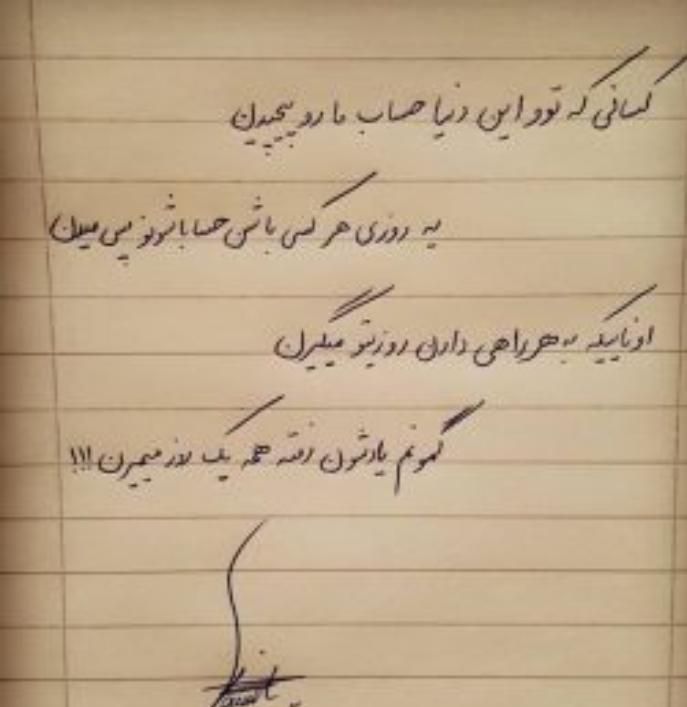 کسانی که توو این دنیا حساب ما رو پیچیدن
یه روزی هر کسی باشن حساباشونو پس میدن
اوناییکه به هر راهی دارن روزیتو میگیرن
گمونم یادشون رفته همه یک روز میمیرن !!!